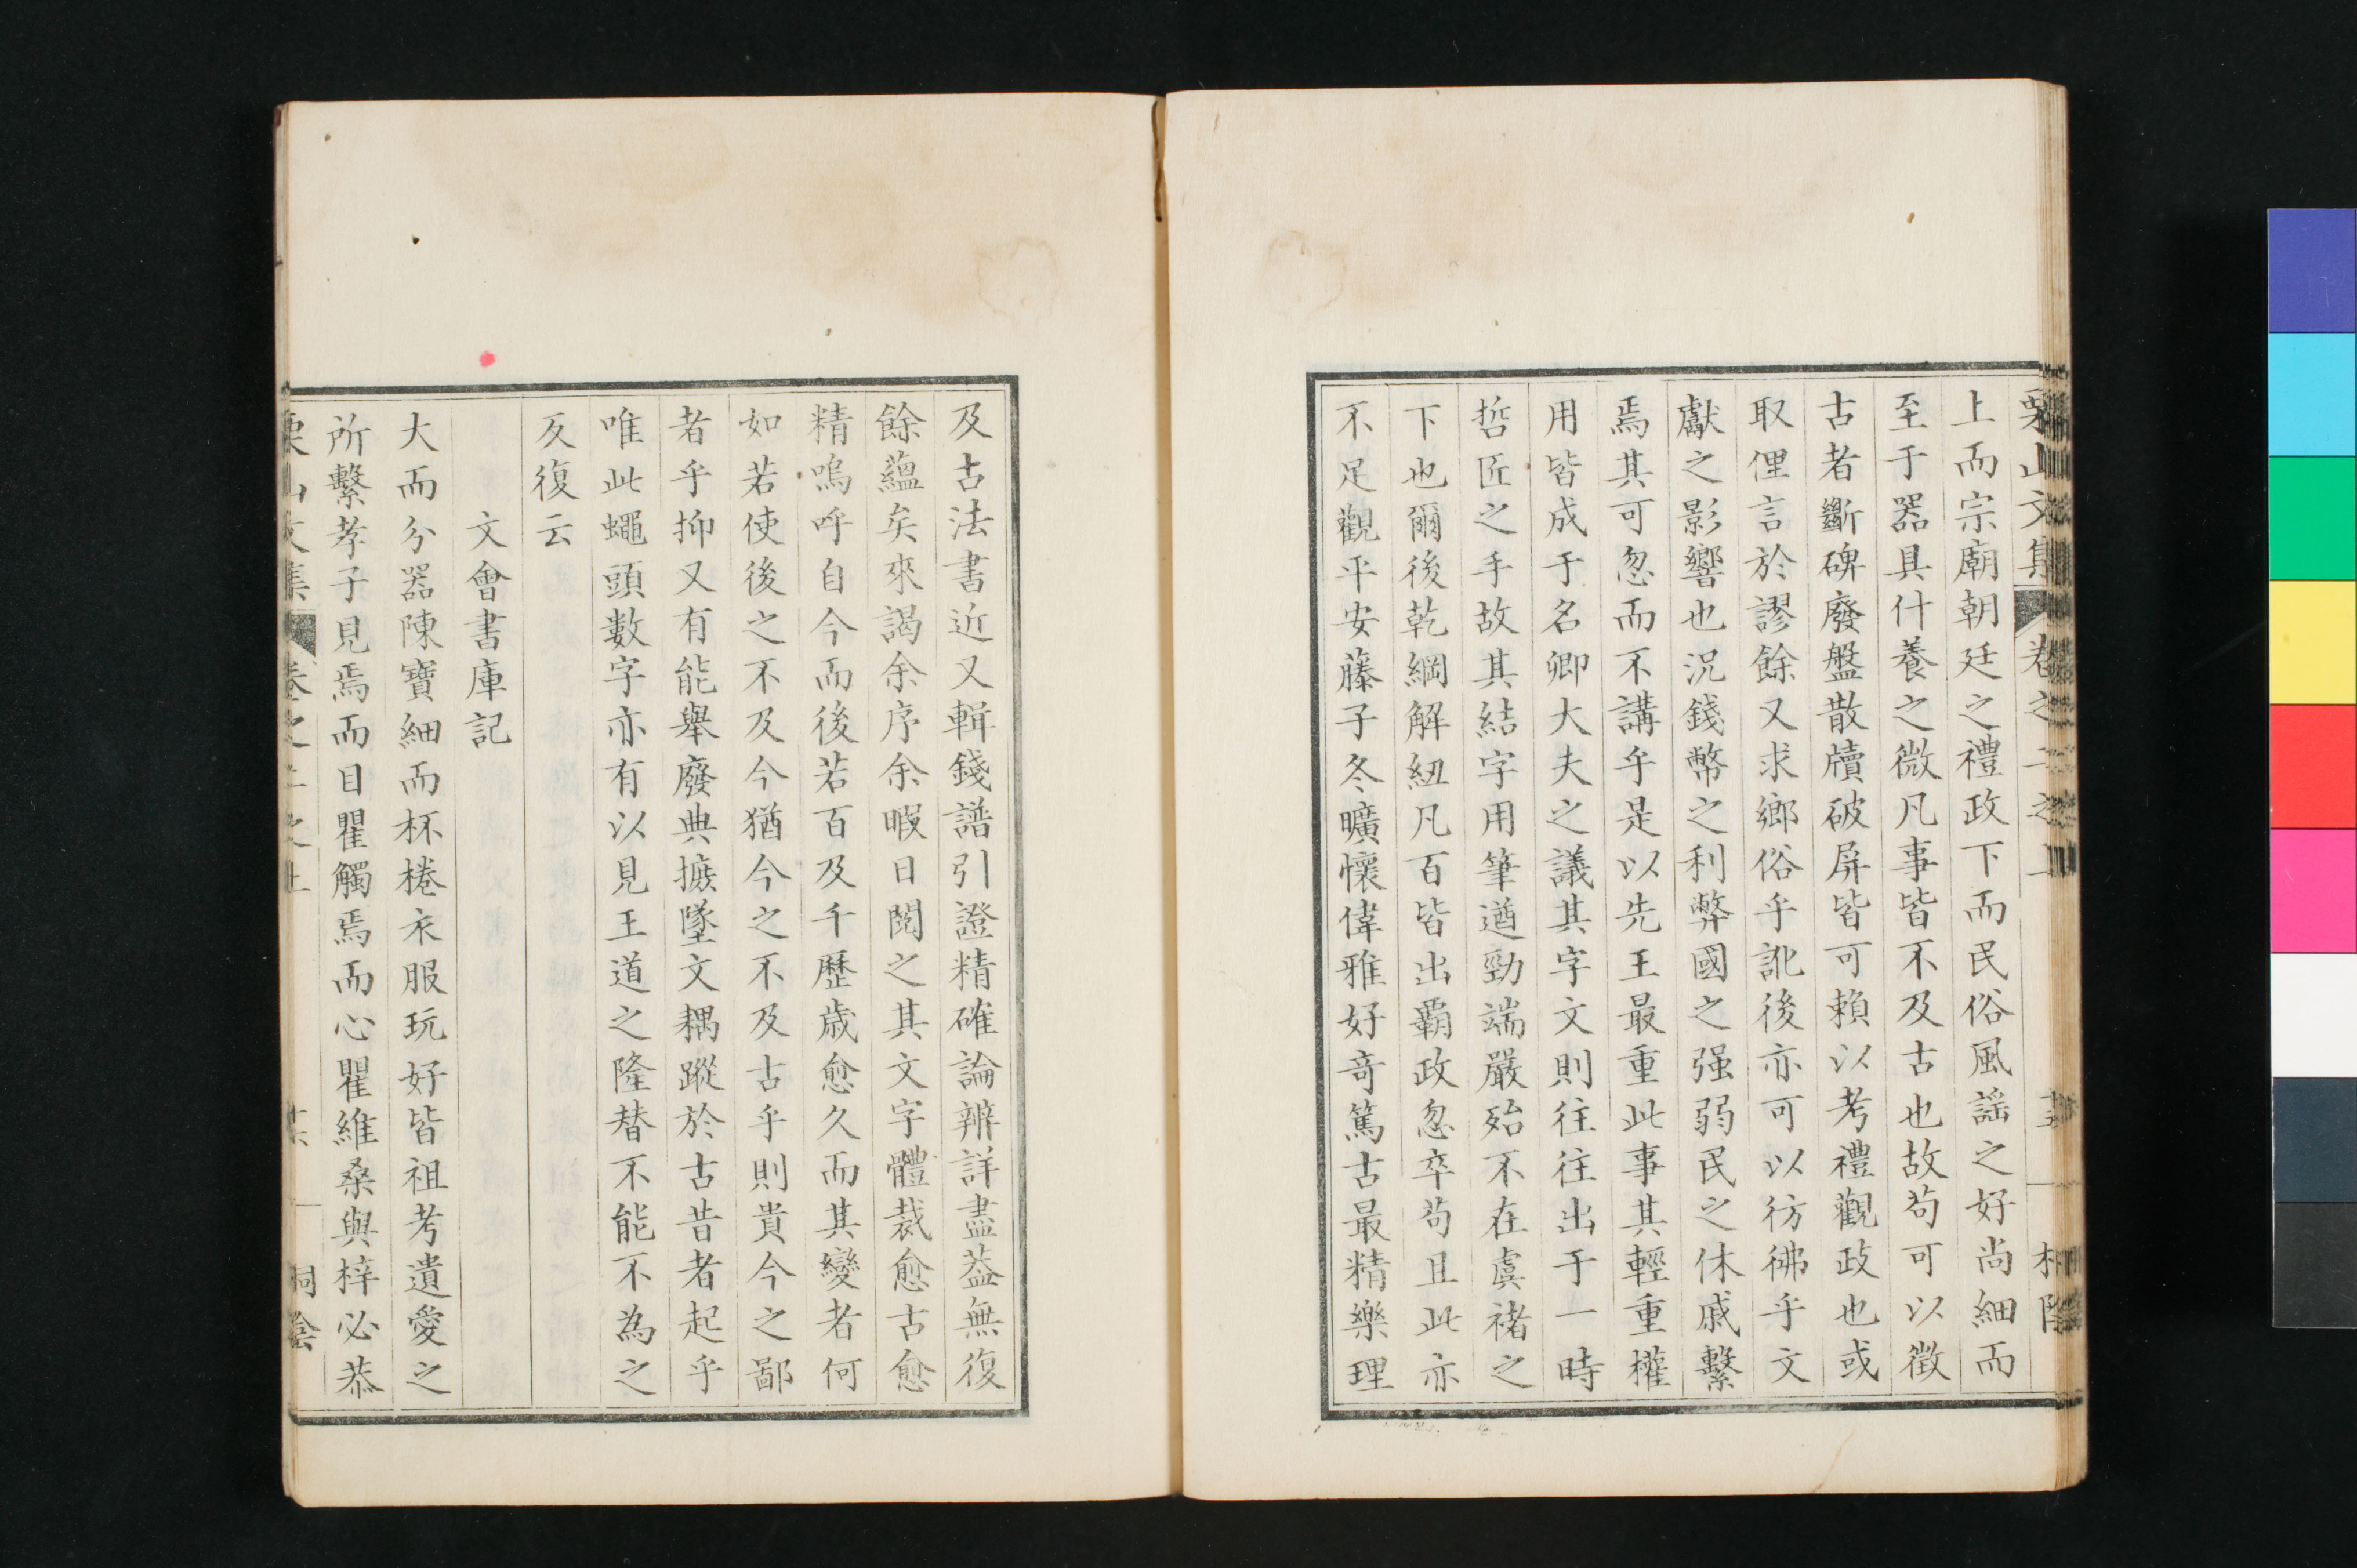 栗山文集 卷之二之上 十五 栖陰
上而宗廟朝廷之禮政下而民俗風謡之好尚細而
至于器具什養之微凡事皆不及古也故苟可以徵
古者斷碑廢盤散牘破屏皆可賴以考禮觀政也或
取俚言於謬餘又求鄉俗乎訛後亦可以彷彿乎文
獻之影響也況錢幣之利弊國之强弱民之休戚繫
焉其可忽而不講乎是以先王最重此事其輕重權
用皆成于名卿大夫之議其字文則往往出于一時
哲匠之手故其結字用筆遒勁端嚴殆不在虞褚之
下也爾後乾綱解紐凡百皆出覇政忽卒苟且此亦
不足觀平安藤子冬曠懷偉雅好竒篤古最精樂理
及古法書近又輯錢譜引證精確論辨詳盡葢無復
餘蘊矣來謁余序余暇日閲之其文字體裁愈古愈
精嗚呼自今而後若百及千歷歳愈久而其變者何
如若使後之不及今猶今之不及古乎則貴今之鄙
者乎抑又有能舉廢典摭墜文耦蹤於古昔者起乎
唯此蠅頭數字亦有以見王道之隆替不能不為之
反復云
文會書庫記
大而分器陳寶細而杯棬衣服玩好皆祖考遺愛之
所繫孝子見焉而目瞿觸焉而心瞿維桑與梓必恭
栗山文集 卷之二之上 十六 栖陰